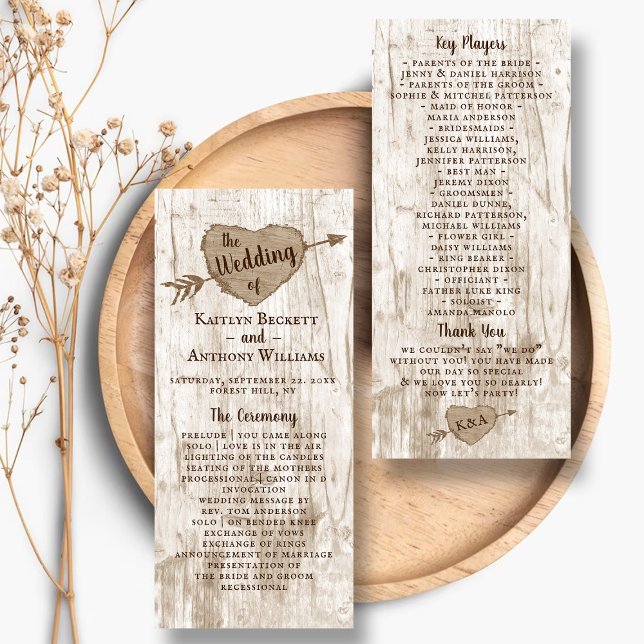 the
Wedding
of
Kaitlyn Beckett
– and –
Anthony Williams
Saturday, September 22. 20XX
Forest Hill, NY
The Ceremony
Prelude | You Came Along
Solo | Love Is In The Air
Lighting of the Candles
Seating of the Mothers
Processional | Canon in D
Invocation
Wedding Message by
Rev. Tom Anderson
Solo | On Bended Knee
Exchange of Vows
Exchange of Rings
Announcement of Marriage
Presentation of
the Bride and Groom
Recessional
Key Players
- Parents of the Bride -
Jenny & Daniel Harrison
- Parents of the Groom -
Sophie & Mitchel Patterson
- Maid of Honor -
Maria Anderson
- Bridesmaids -
Jessica Williams,
Kelly Harrison,
Jennifer Patterson
- Best Man -
Jeremy Dixon
- Groomsmen -
Daniel Dunne,
Richard Patterson,
Michael Williams
- Flower Girl -
Daisy Williams
- Ring Bearer -
Christopher Dixon
- Officiant -
Father Luke King
- Soloist -
Amanda Manolo
Thank You
We couldn't say "We Do"
without you! You have made
our day so special
& we love you so dearly!
Now let's party!
K&A